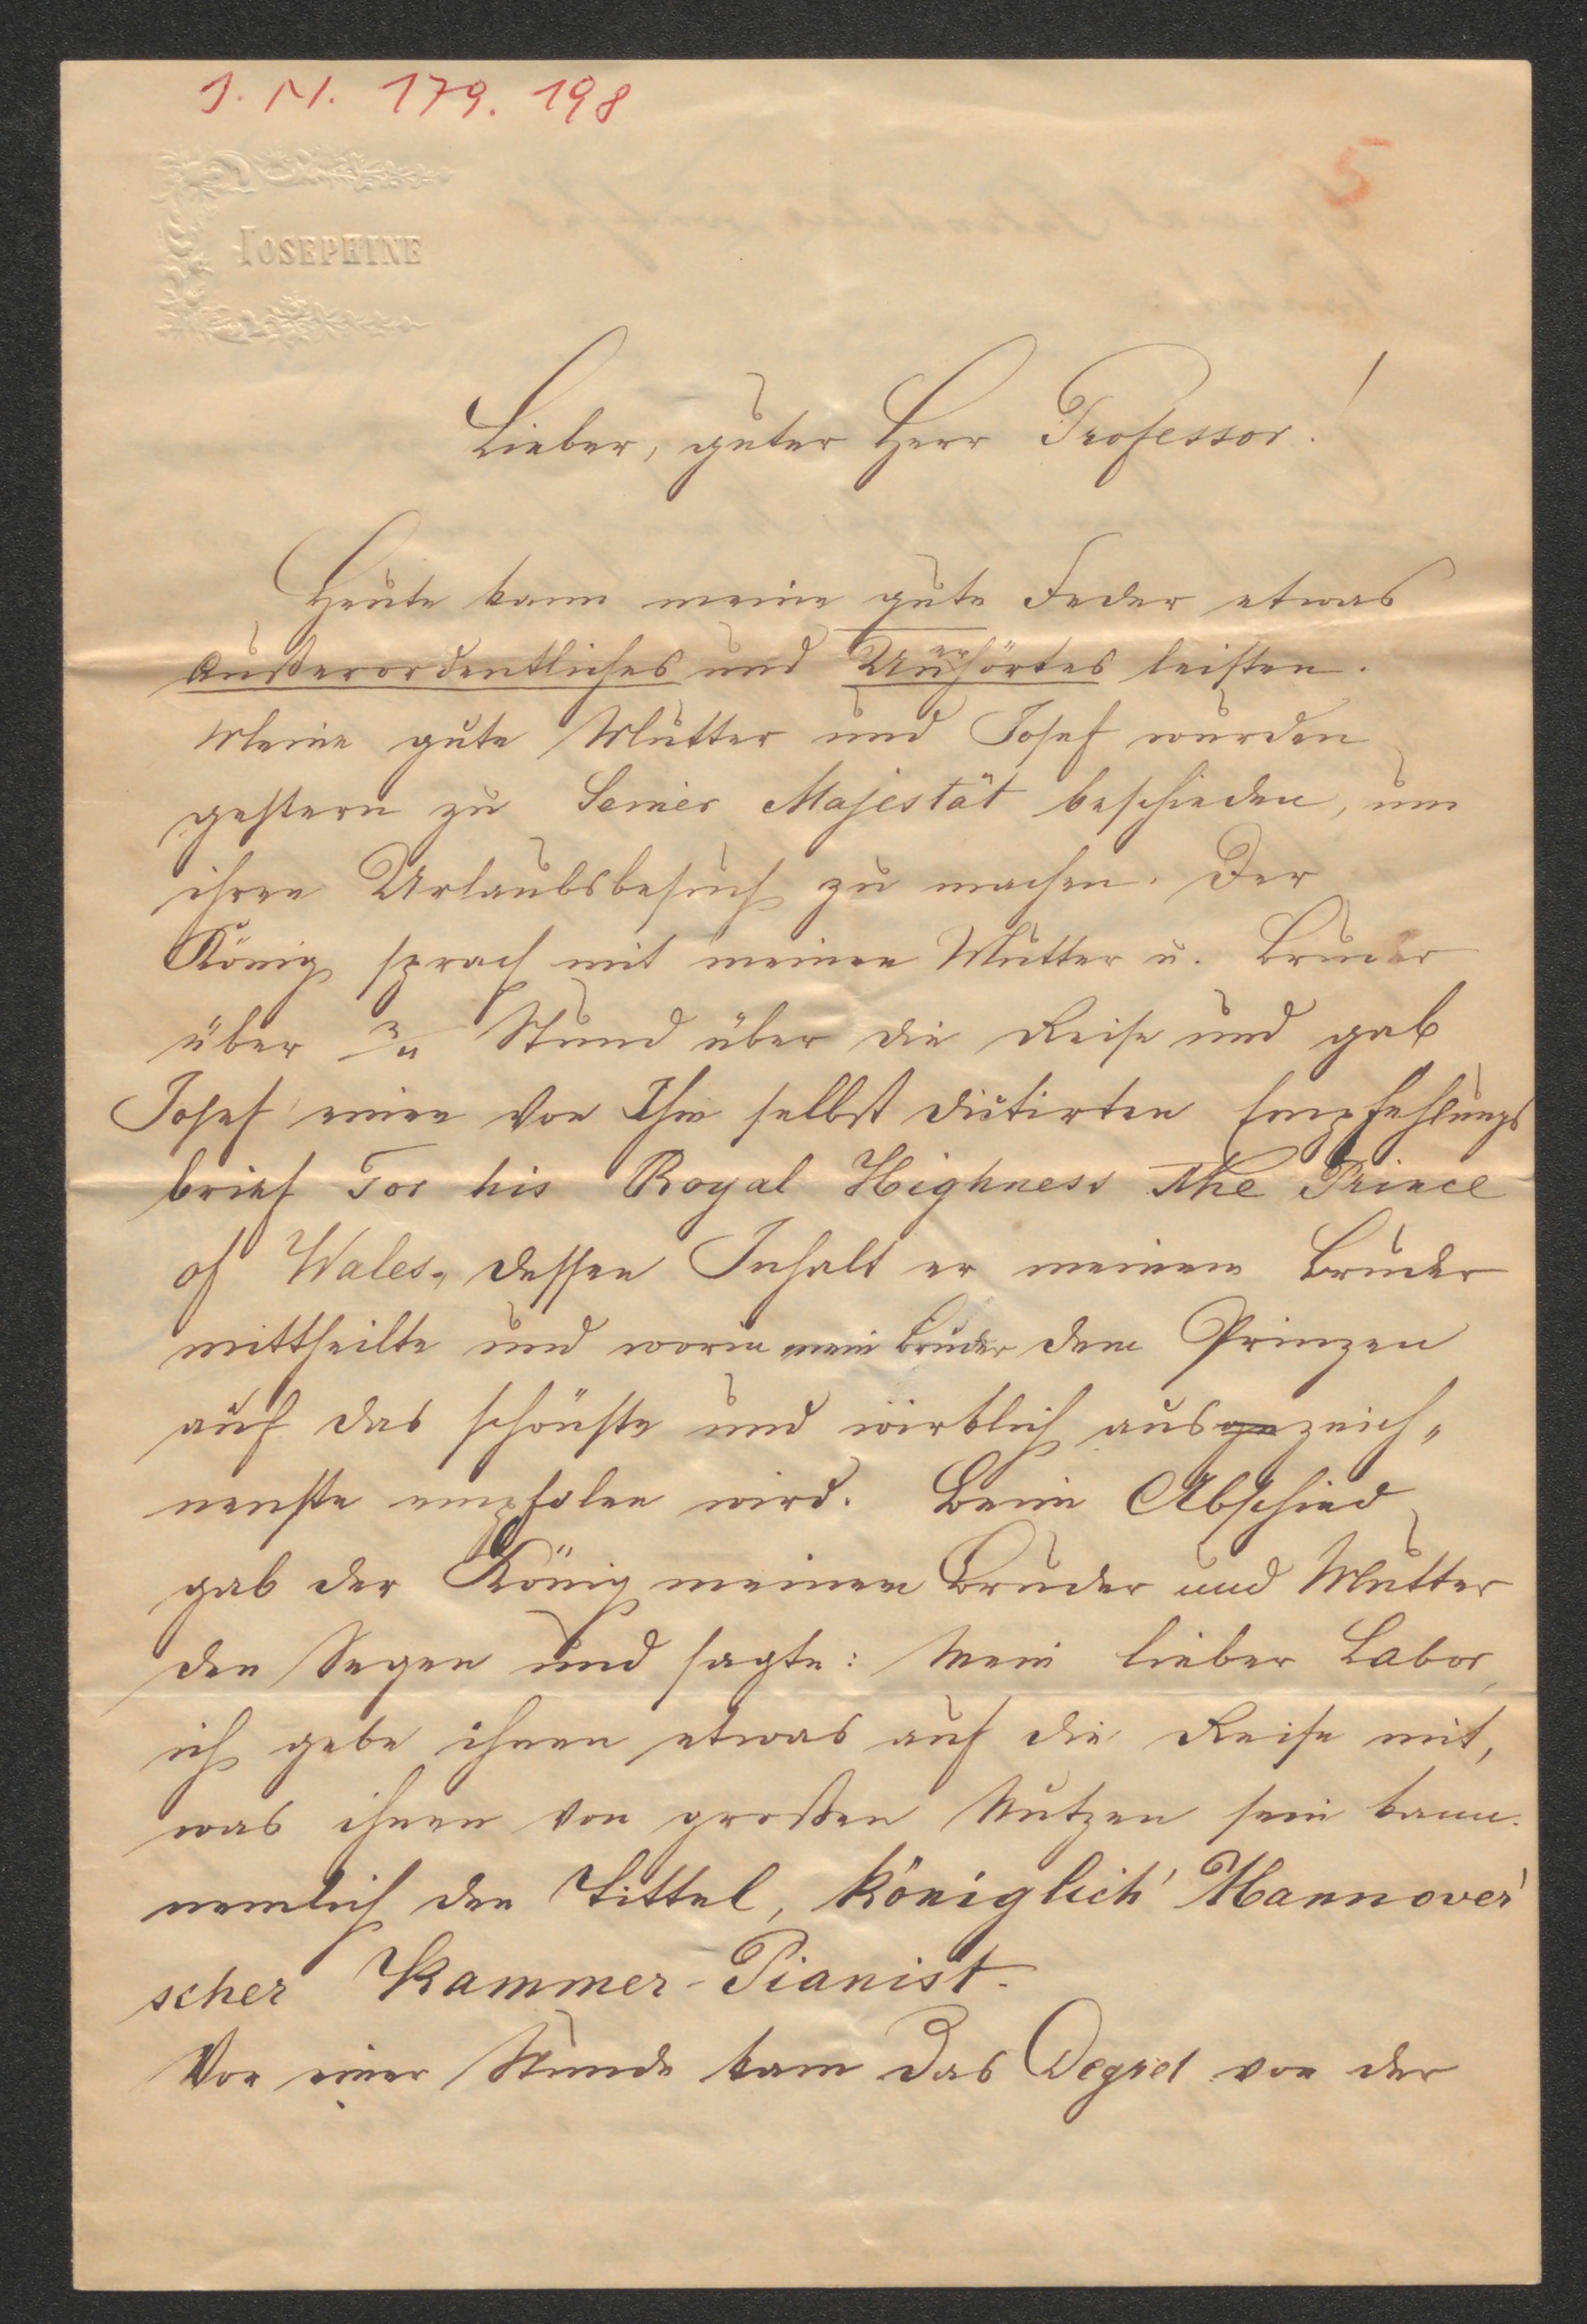 J. N. 179.198
5
JOSEPHINE
Lieber, guter Herr Professor!
Heute kann meine gute Feder etwas
Außerordentliches und Unerhörtes leisten.
Meine gute Mutter und Josef wurden
gestern zu Seiner Majestät beschieden, um
ihren Urlaubsbesuch zu machen. Der
König sprach mit meiner Mutter u. Bruder
über 3/4 Stund über die Reise und gab
Josef einen von Ihm selbst dictirten Empfehlungs
brief For his Royal Highness The Prince
of Wales, dessen Inhalt er meinem Bruder
mittheilte und worin mein Bruder dem Prinzen
auf das schönste und wirklich ausgezeich„
nenste empfolen wird. Beim Abschied
gab der König meinem Bruder und Mutter
den Segen und sagte: Mein lieber Labor,
ich gebe ihnen etwas auf die Reise mit,
was ihnen von großen Nutzen sein kann.
nemlich den Tittel, königlich Hannover'
scher Kammer-Pianist.
Vor einer Stunde kam das Degret von der